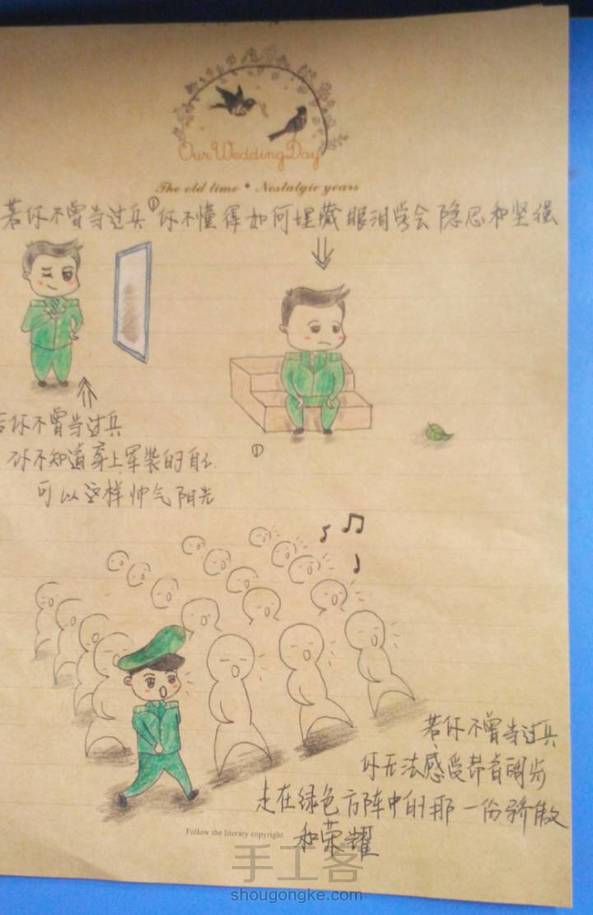 Our Wedding Day
The old time • Nostalgic years
若你不曾当过兵 ① 你不懂得如何埋藏眼泪学会隐忍和坚强
若你不曾当过兵
你不知道穿上军装的自己
可以这样帅气阳光
①
若你不曾当过兵
你无法感受昂首阔步
走在绿色方阵中的那一份骄傲
和荣耀
Follow the literary copyright
手工客
shougongke.com